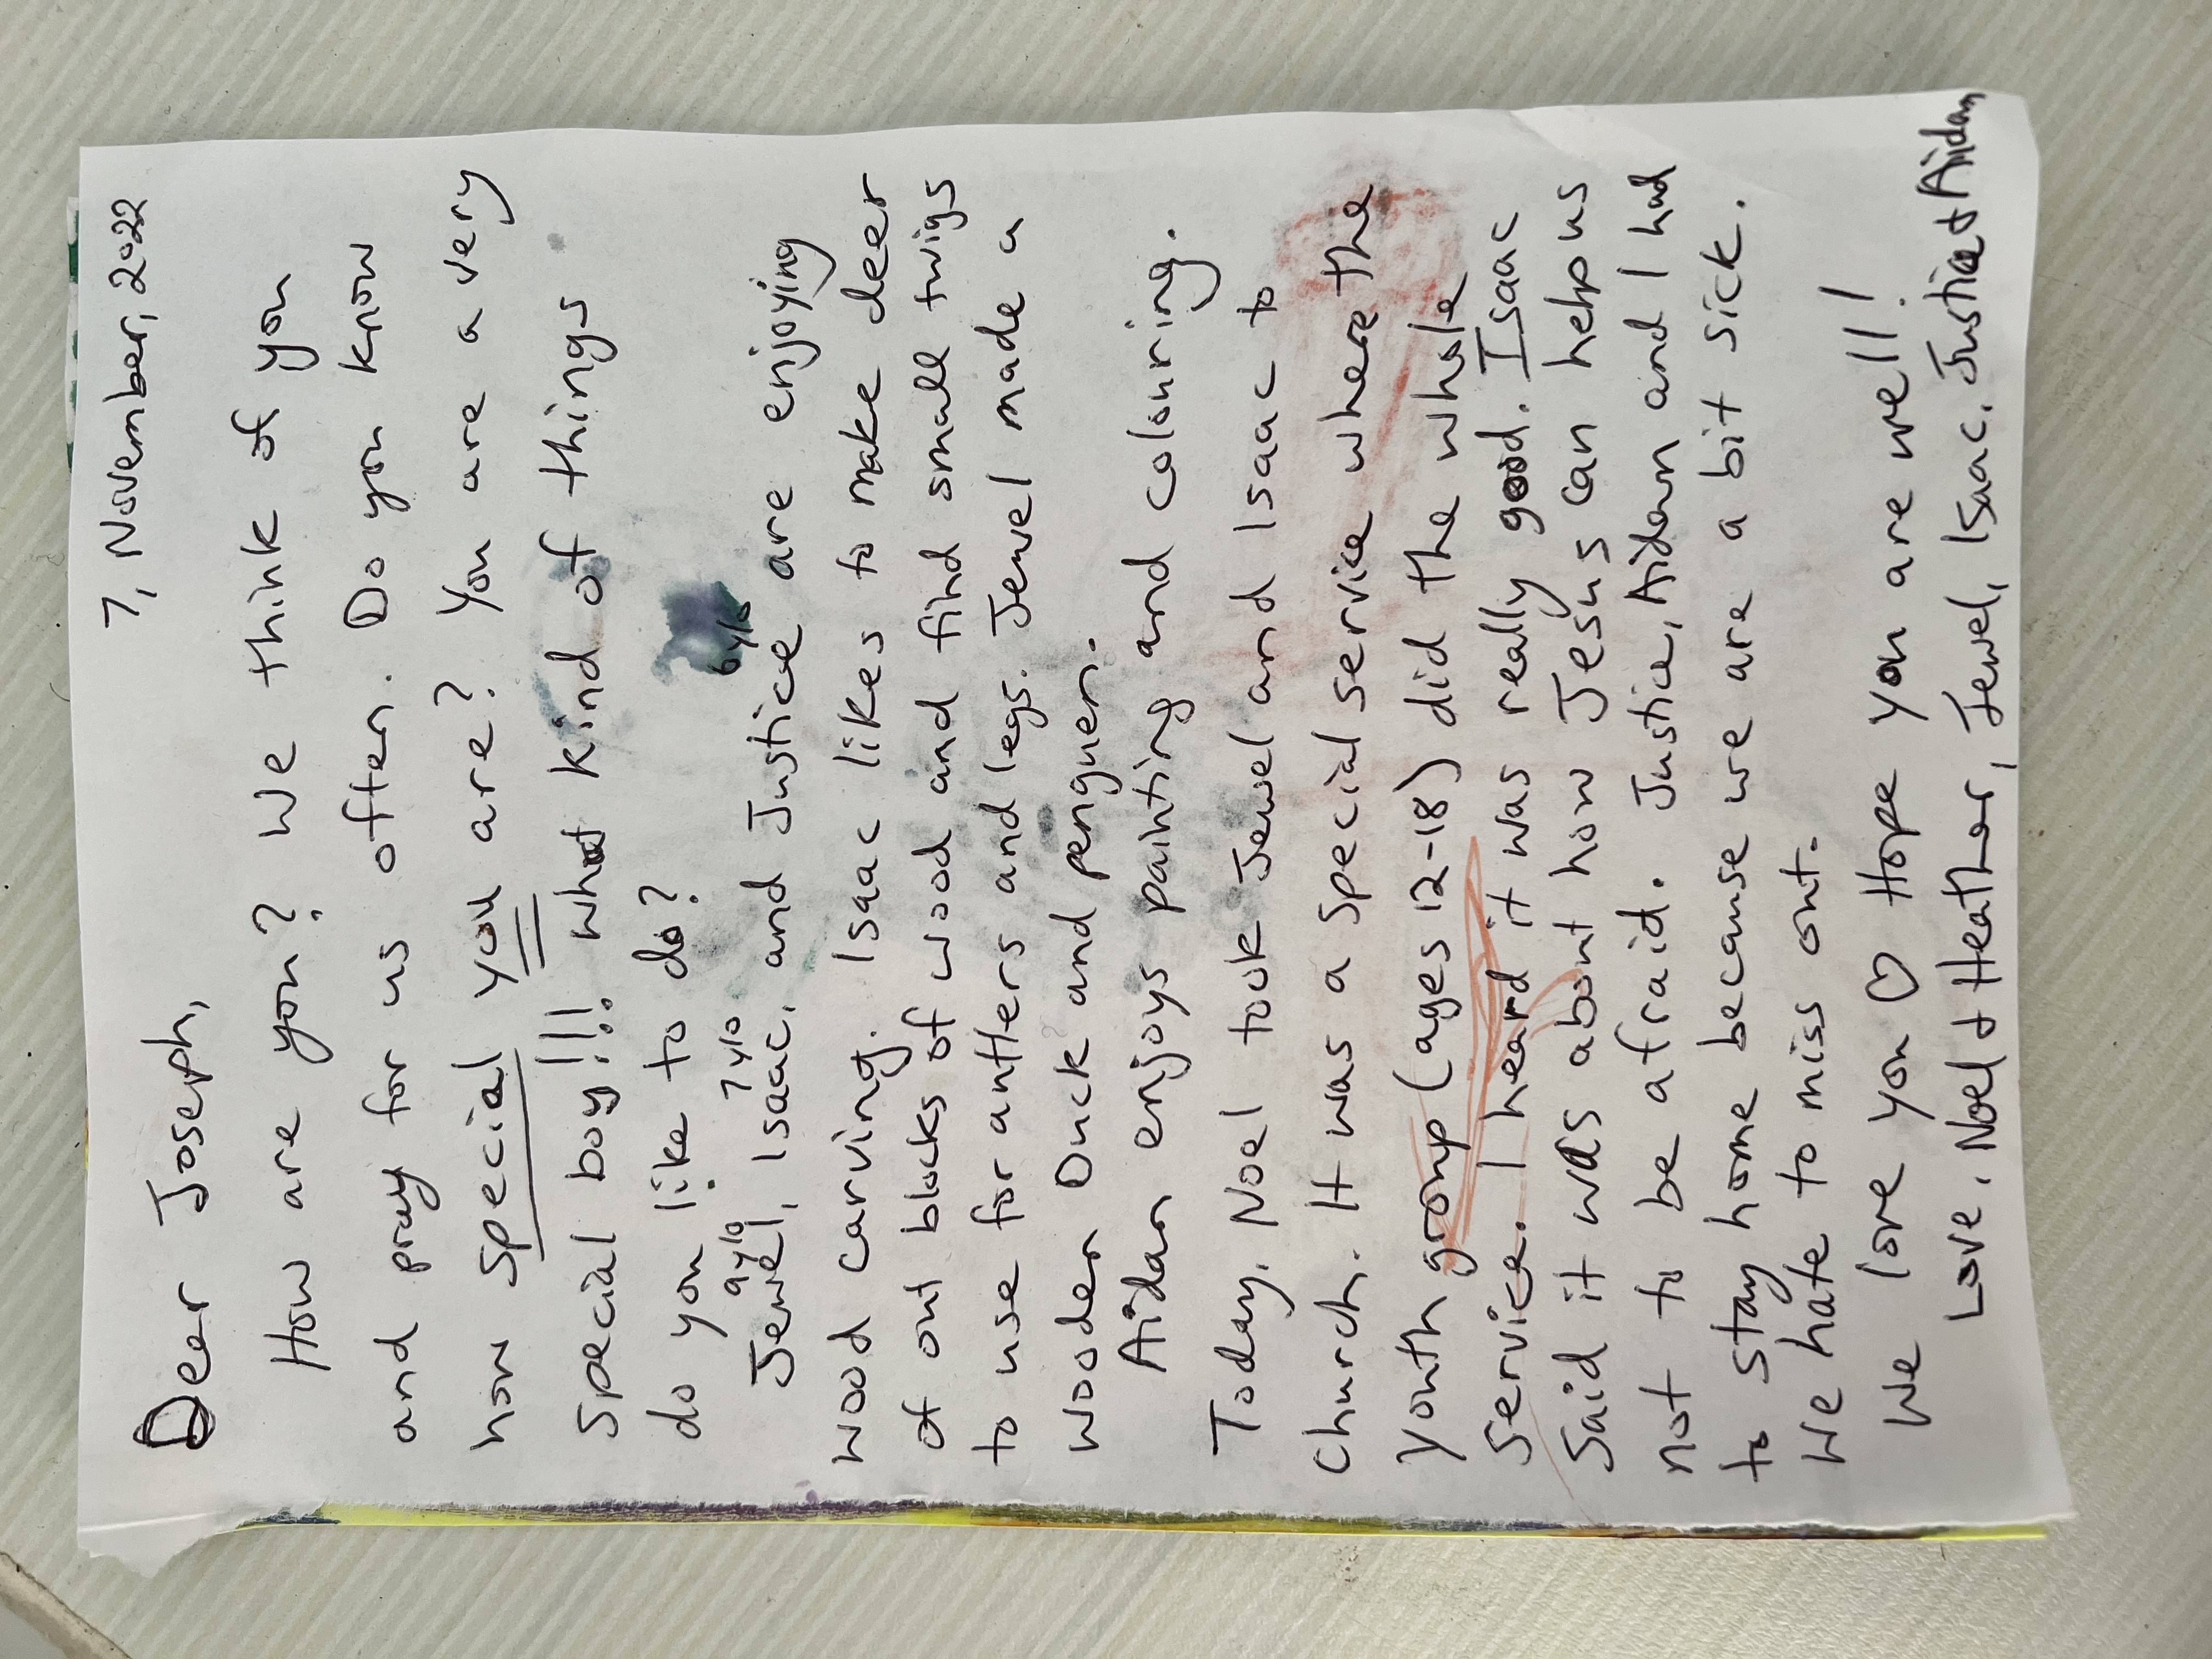 7, November, 2022
Deer Joseph,
How are you? We think of you
and pray for us often. Do you know
how special you are? You are a very
special boy!!! What kind of things
do you like to do?
9 y/o 7 y/o 6 y/o
Jewel, Isaac, and Justice are enjoying
wood carving. Isaac likes to make deer
of out blocks of wood and find small twigs
to use for antlers and legs. Jewel made a
wooden Duck and penguen.
Aidan enjoys painting and colouring.
Today, Noel took Jewel and Isaac to
church. It was a special service where the
youth group (ages 12-18) did the whole
service. I heard it was really good. Isaac
said it was about how Jesus can help us
not to be afraid. Justice, Aidan and I had
to stay home because we are a bit sick.
We hate to miss out.
We love you ♡ Hope you are well!
Love, Noel & Heather, Jewel, Isaac, Justice & Aidan